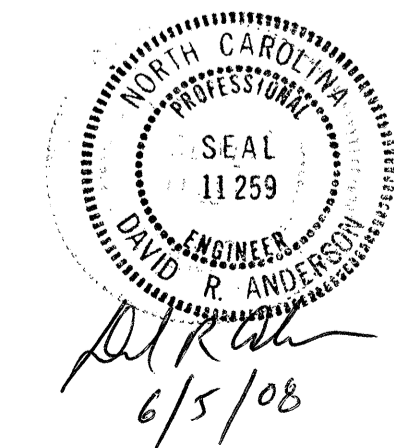 NORTH CAROLINA
PROFESSIONAL
SEAL
11259
ENGINEER
DAVID R. ANDERSON
6/5/08